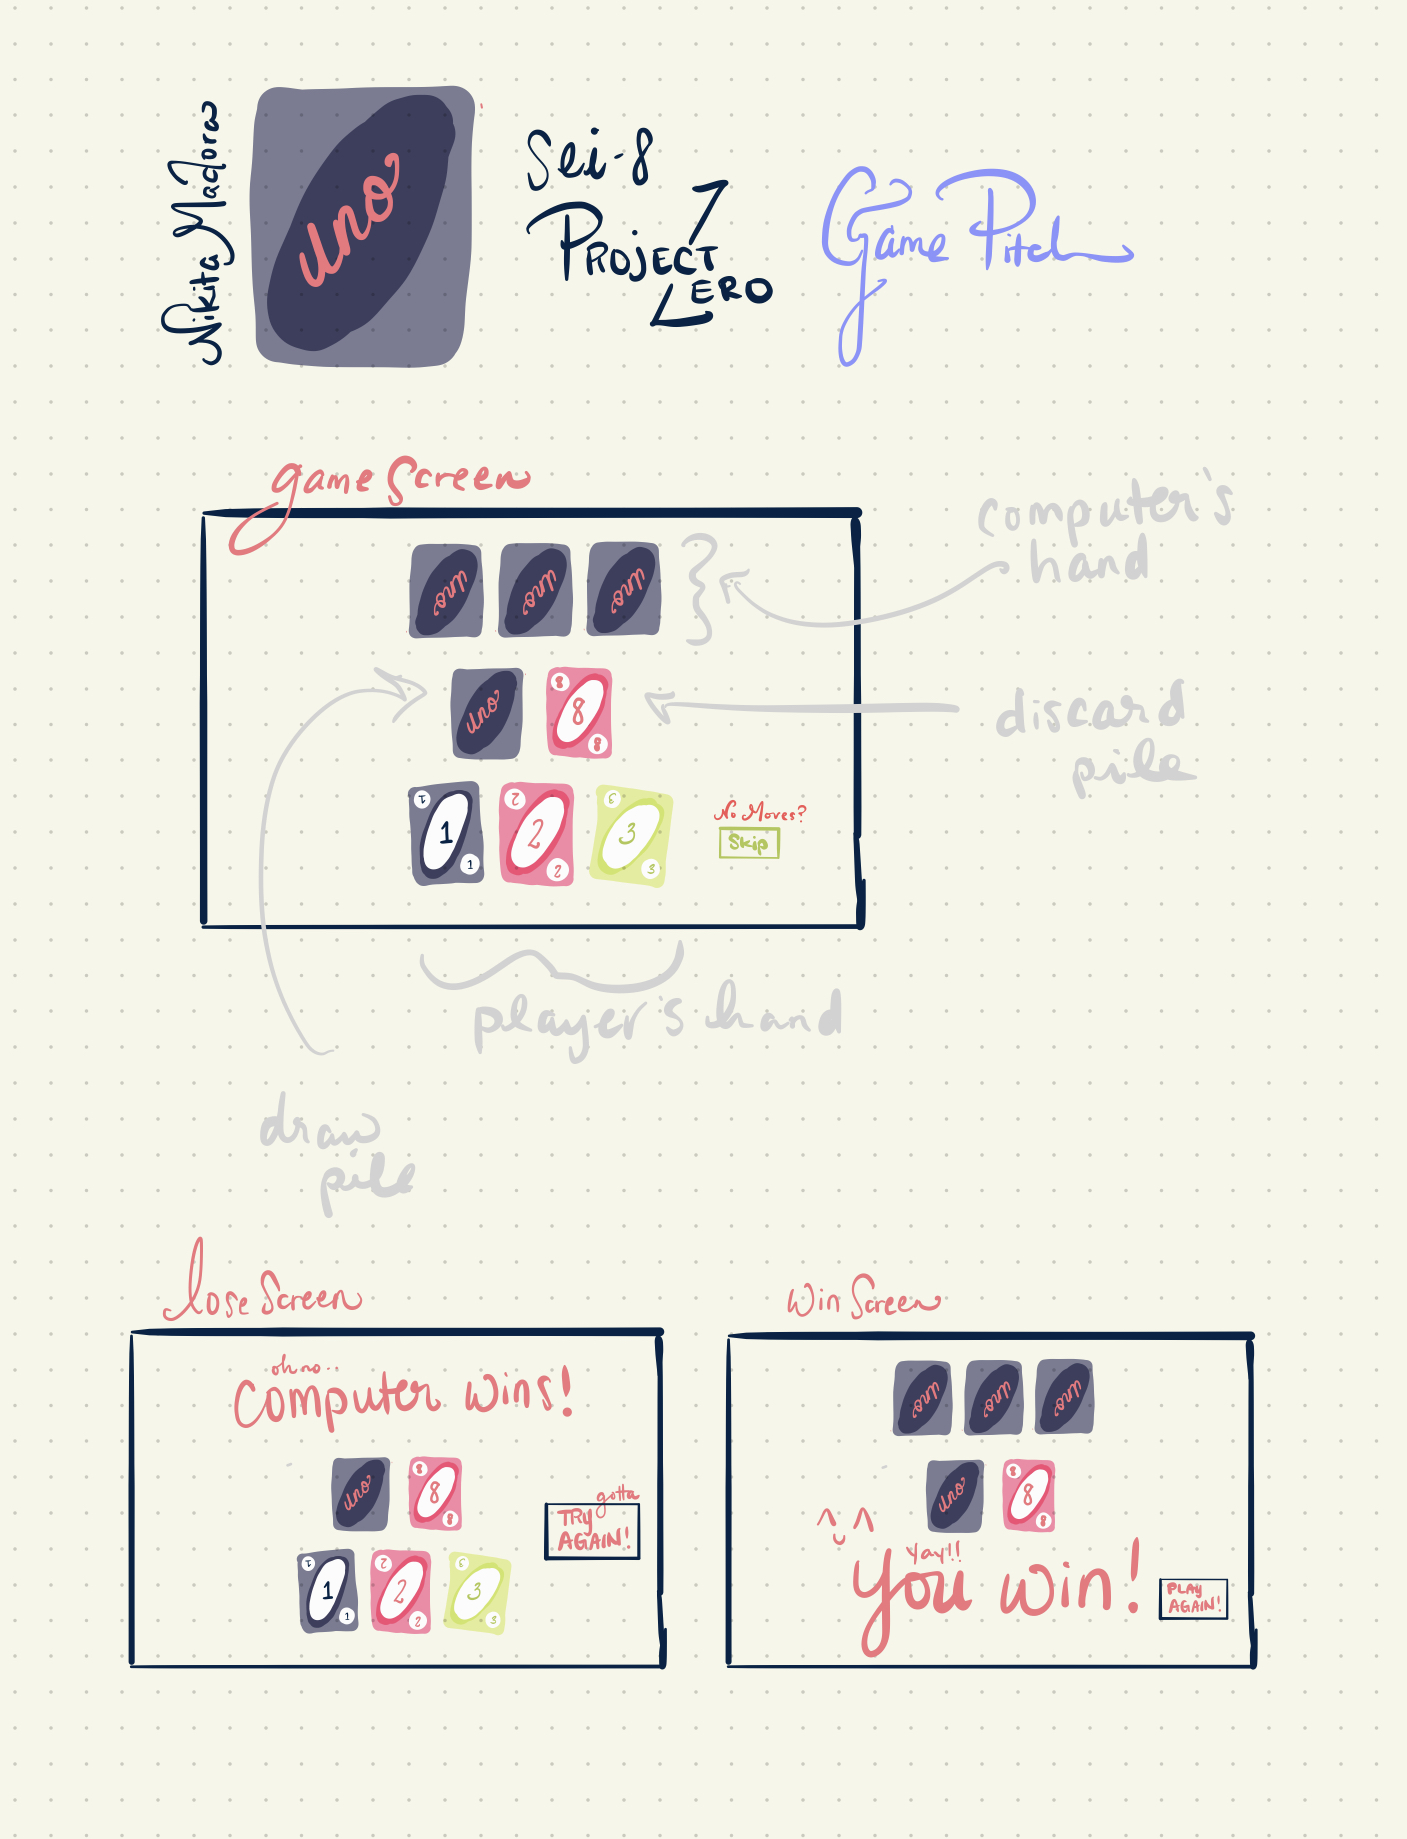 Nikita Madora
uno
Sei-8
PROJECT
ZERO
Game Pitch
game Screen
computer's
hand
uno uno uno
uno
8 8 8
discard
pile
1 1 1
2 2 2
3 3 3
No Moves?
Skip
player's hand
draw
pile
lose Screen
oh no..
Computer wins!
uno
8 8 8
gotta
TRY
AGAIN!
1 1 1
2 2 2
3 3 3
Win Screen
uno uno uno
uno
8 8 8
^ ^
Yay!!
You win!
PLAY
AGAIN!